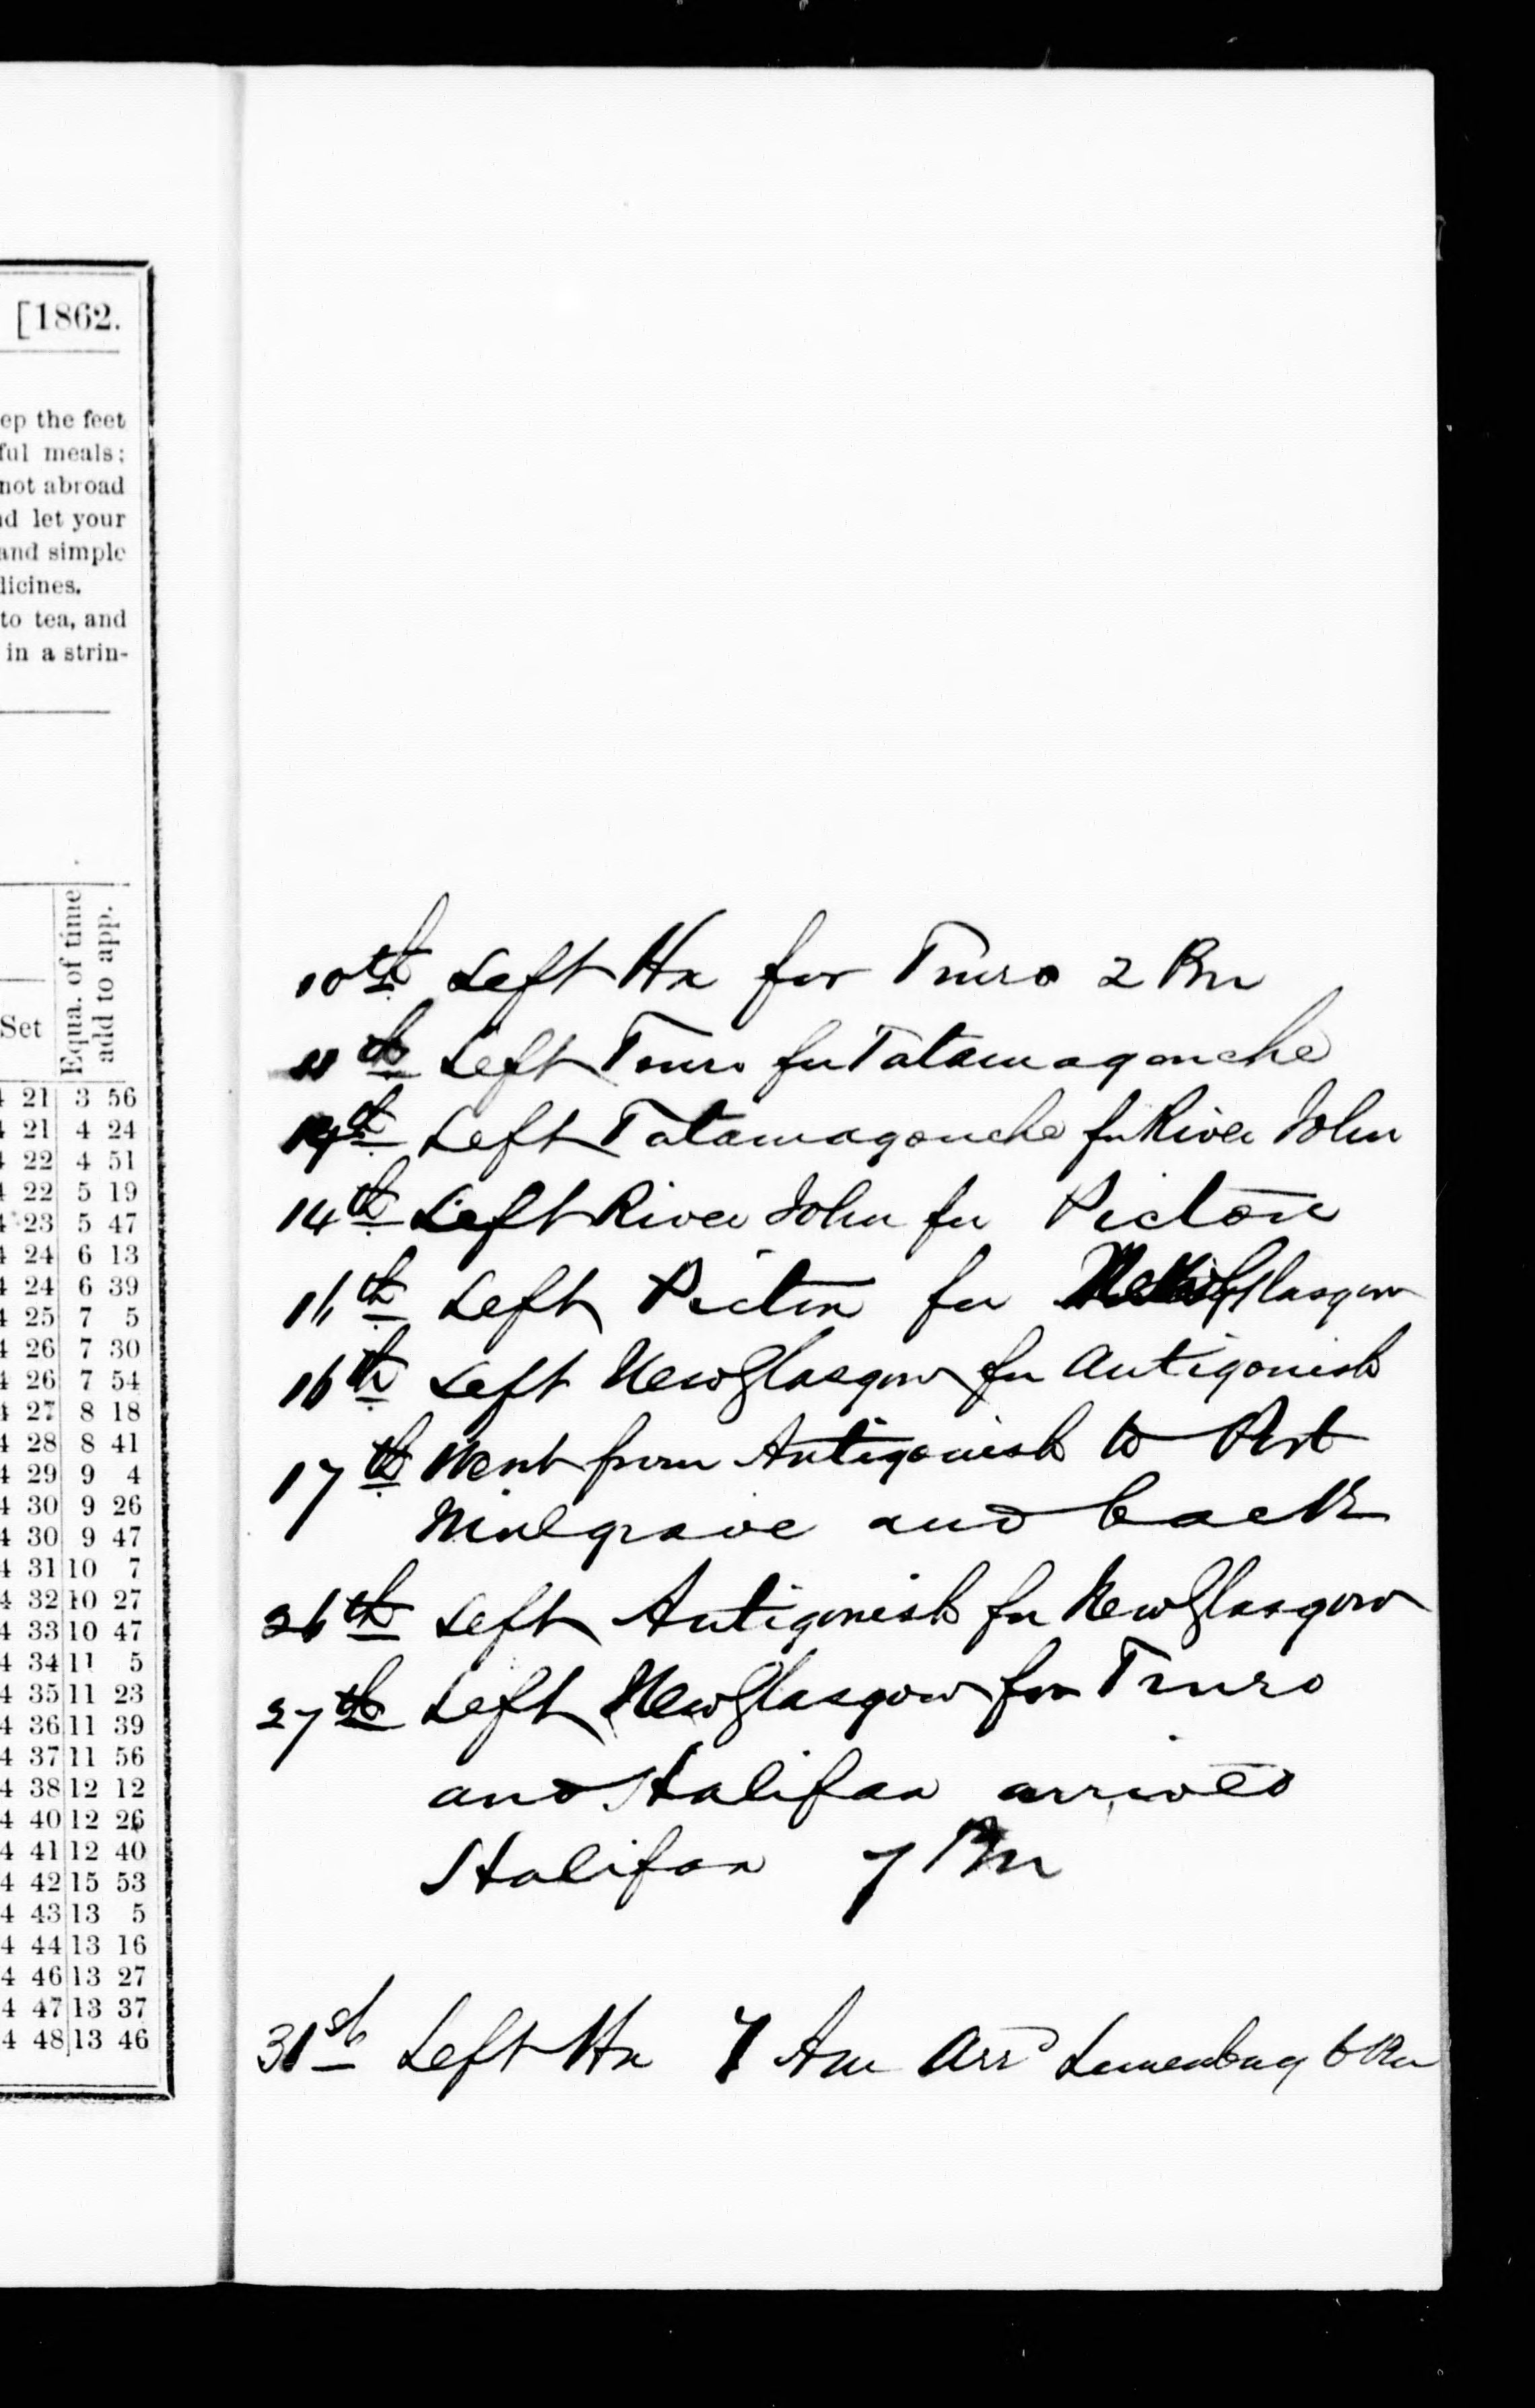 [1862.
ep the feet
ful meals;
not abroad
nd let your
and simple
licines.
to tea, and
in a strin-
Equa. of time
add to app.
Set
4 21 3 56
4 21 4 24
4 22 4 51
4 22 5 19
4 23 5 47
4 24 6 13
4 24 6 39
4 25 7 5
4 26 7 30
4 26 7 54
4 27 8 18
4 28 8 41
4 29 9 4
4 30 9 26
4 30 9 47
4 31 10 7
4 32 10 27
4 33 10 47
4 34 11 5
4 35 11 23
4 36 11 39
4 37 11 56
4 38 12 12
4 40 12 26
4 41 12 40
4 42 15 53
4 43 13 5
4 44 13 16
4 46 13 27
4 47 13 37
4 48 13 46
10th Left Hx for Truro 2 Pm
11th Left Truro for Tatamagouche
Left Tatamagouche for River John
14th Left River John for Pictou
Left Pictou for Glasgow
16th Left New Glasgow for Antigonish
17th Went from Antigonish to Port
Mulgrave and back
26th Left Antigonish for New Glasgow
27th Left New Glasgow for Truro
and Halifax arrived
Halifax 7 Pm
31st Left Hx 7 Am Arrd Lunenburg 6 Pm